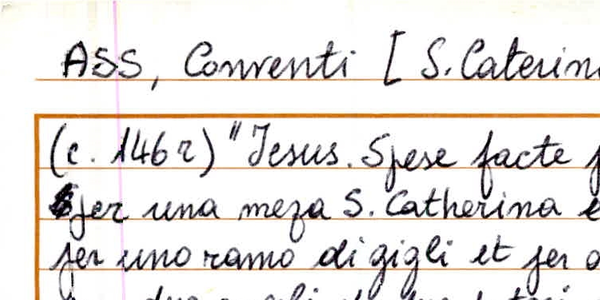 ASS, Conventi [ S. Caterin
(c. 146 r) "Jesus. Spese facte
per una meza S. Catherina e
per uno ramo di gigli et per